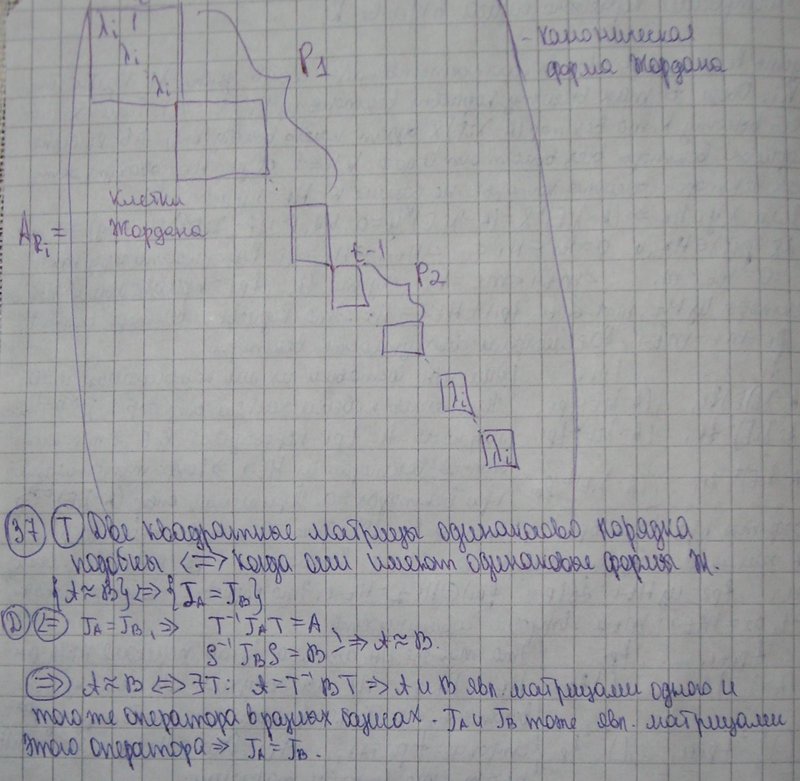 λi 1
λi
λi
P1
- каноническая
форма Жордана
клетки
Жордана
A_{Ri} =
t-1
P2
λi
λi
37 Т Две квадратные матрицы одинакового порядка
подобны <=> когда они имеют одинаковые формы Ж.
{A≈B} <=> {J_A = J_B}
Д <= J_A = J_B, => T⁻¹ J_A T = A
S⁻¹ J_B S = B } => A≈B.
=> A≈B <=> ∃T: A = T⁻¹ B T => A и B явл. матрицами одного и
того же оператора в разных базисах. J_A и J_B тоже явл. матрицами
этого оператора => J_A = J_B.